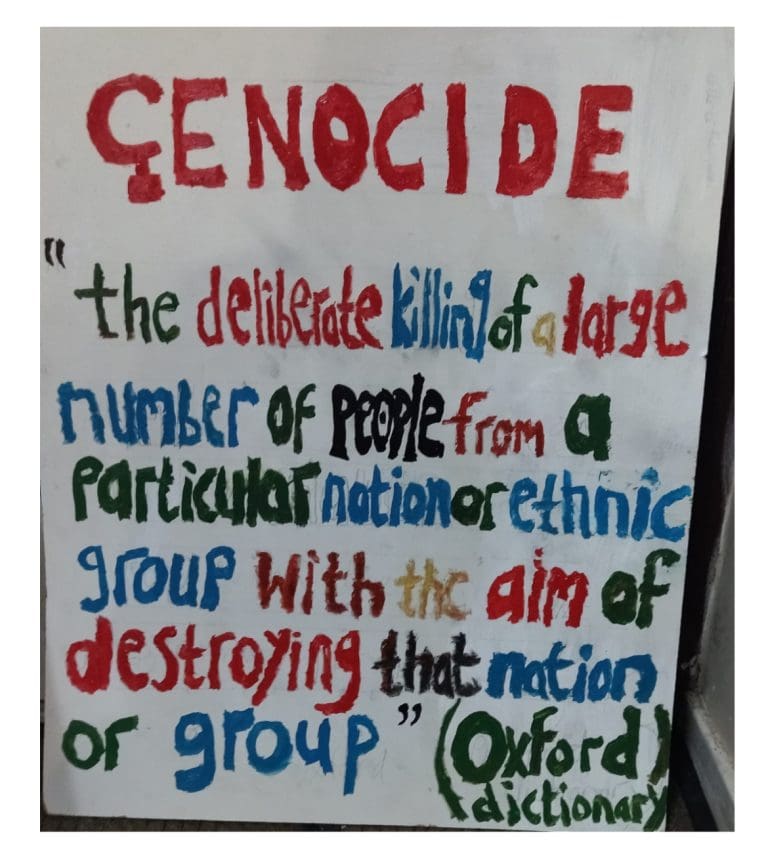 GENOCIDE
"the deliberate killing of a large
number of people from a
particular nation or ethnic
group with the aim of
destroying that nation
or group" (Oxford
dictionary)